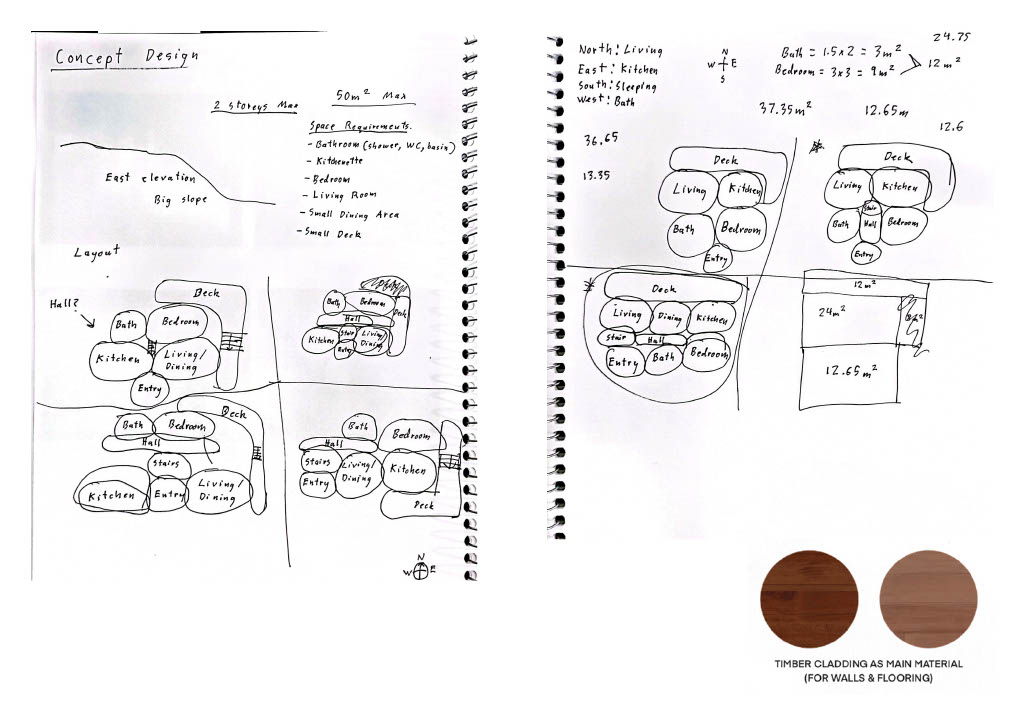 Concept Design
2 Storeys Max
50m² Max
Space Requirements.
- Bathroom (shower, WC, basin)
- Kitchenette
- Bedroom
- Living Room
- Small Dining Area
- Small Deck
East elevation
Big slope
Layout
Hall?
Deck
Bath
Bedroom
Kitchen
Living/
Dining
Entry
Bath
Bedroom
Deck
Hall
Kitchen
Stair
Living/
Dining
Entry
Deck
Bath
Bedroom
Hall
Stairs
Kitchen
Entry
Living/
Dining
Bath
Bedroom
Hall
Stairs
Living/
Dining
Kitchen
Entry
Deck
N
W E
North: Living
East: Kitchen
South: Sleeping
West: Bath
N
W E
S
24.75
Bath = 1.5x2 = 3m²
Bedroom = 3x3 = 9m²
12m²
37.35m²
12.65m
12.6
36.65
13.35
Deck
Living
Kitchen
Bath
Bedroom
Entry
Deck
Living
Kitchen
Stair
Bath
Hall
Bedroom
Entry
Deck
Living
Dining
Kitchen
Stair
Hall
Entry
Bath
Bedroom
12m²
24m²
12.65m²
TIMBER CLADDING AS MAIN MATERIAL
(FOR WALLS & FLOORING)